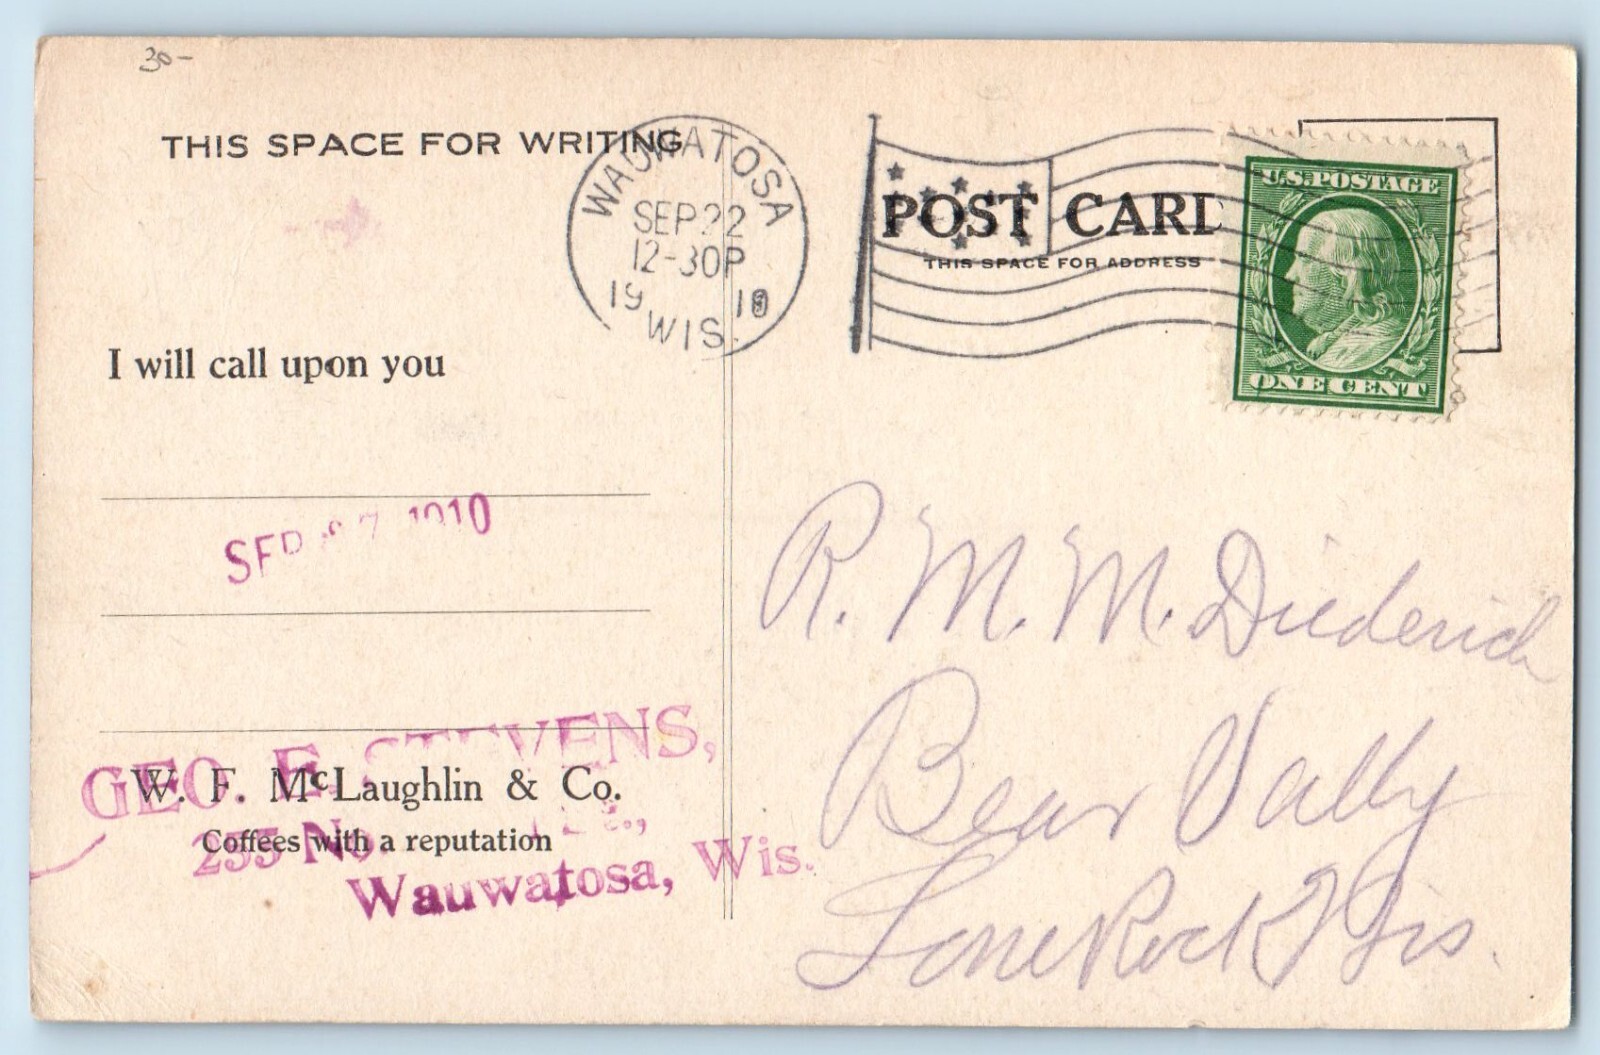 30-
THIS SPACE FOR WRITING
WAUWATOSA
SEP 22
12-30P
1910
WIS.
POST CARD
THIS SPACE FOR ADDRESS
U.S. POSTAGE
ONE CENT
I will call upon you
SEP 27 1910
GEO. E. STEVENS,
W. F. McLaughlin & Co.
Coffees with a reputation
255 No.
Wauwatosa, Wis.
R. M. M. Diederich
Bear Vally
Lone Rock Wis.